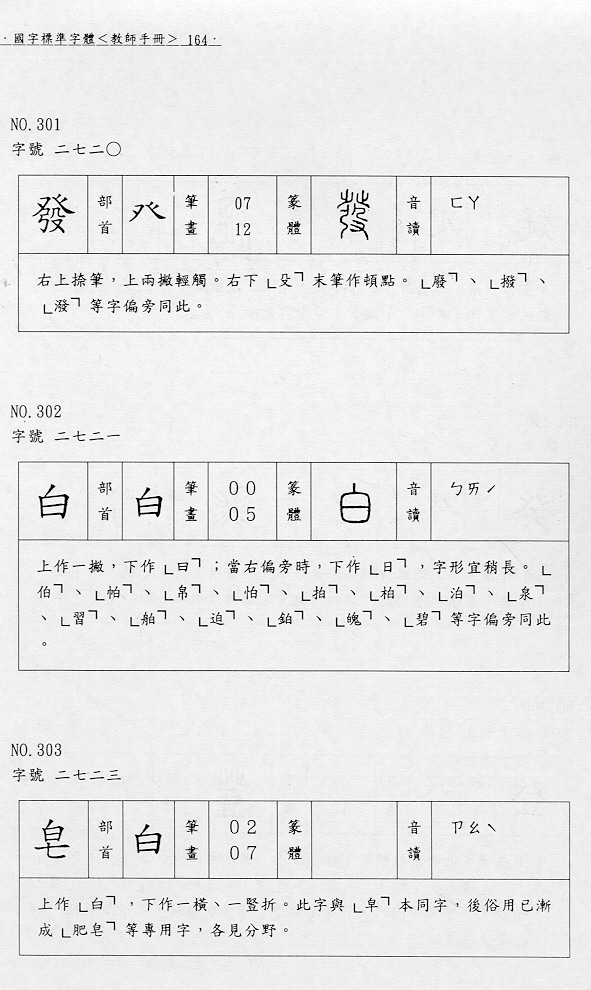 ·國字標準字體＜教師手冊＞ 164·
NO.301
字號 二七二〇
發 部首 癶 筆畫 07 12 篆體 音讀 ㄈㄚ
右上捺筆，上兩撇輕觸。右下﹂殳﹁末筆作頓點。﹂廢﹁、﹂撥﹁、
﹂潑﹁等字偏旁同此。
NO.302
字號 二七二一
白 部首 白 筆畫 00 05 篆體 白 音讀 ㄅㄞˊ
上作一撇，下作﹂曰﹁；當右偏旁時，下作﹂日﹁，字形宜稍長。﹂
伯﹁、﹂帕﹁、﹂帛﹁、﹂怕﹁、﹂拍﹁、﹂柏﹁、﹂泊﹁、﹂泉﹁
、﹂習﹁、﹂舶﹁、﹂迫﹁、﹂鉑﹁、﹂魄﹁、﹂碧﹁等字偏旁同此
。
NO.303
字號 二七二三
皂 部首 白 筆畫 02 07 篆體 音讀 ㄗㄠˋ
上作﹂白﹁，下作一橫、一豎折。此字與﹂皁﹁本同字，後俗用已漸
成﹂肥皂﹁等專用字，各見分野。